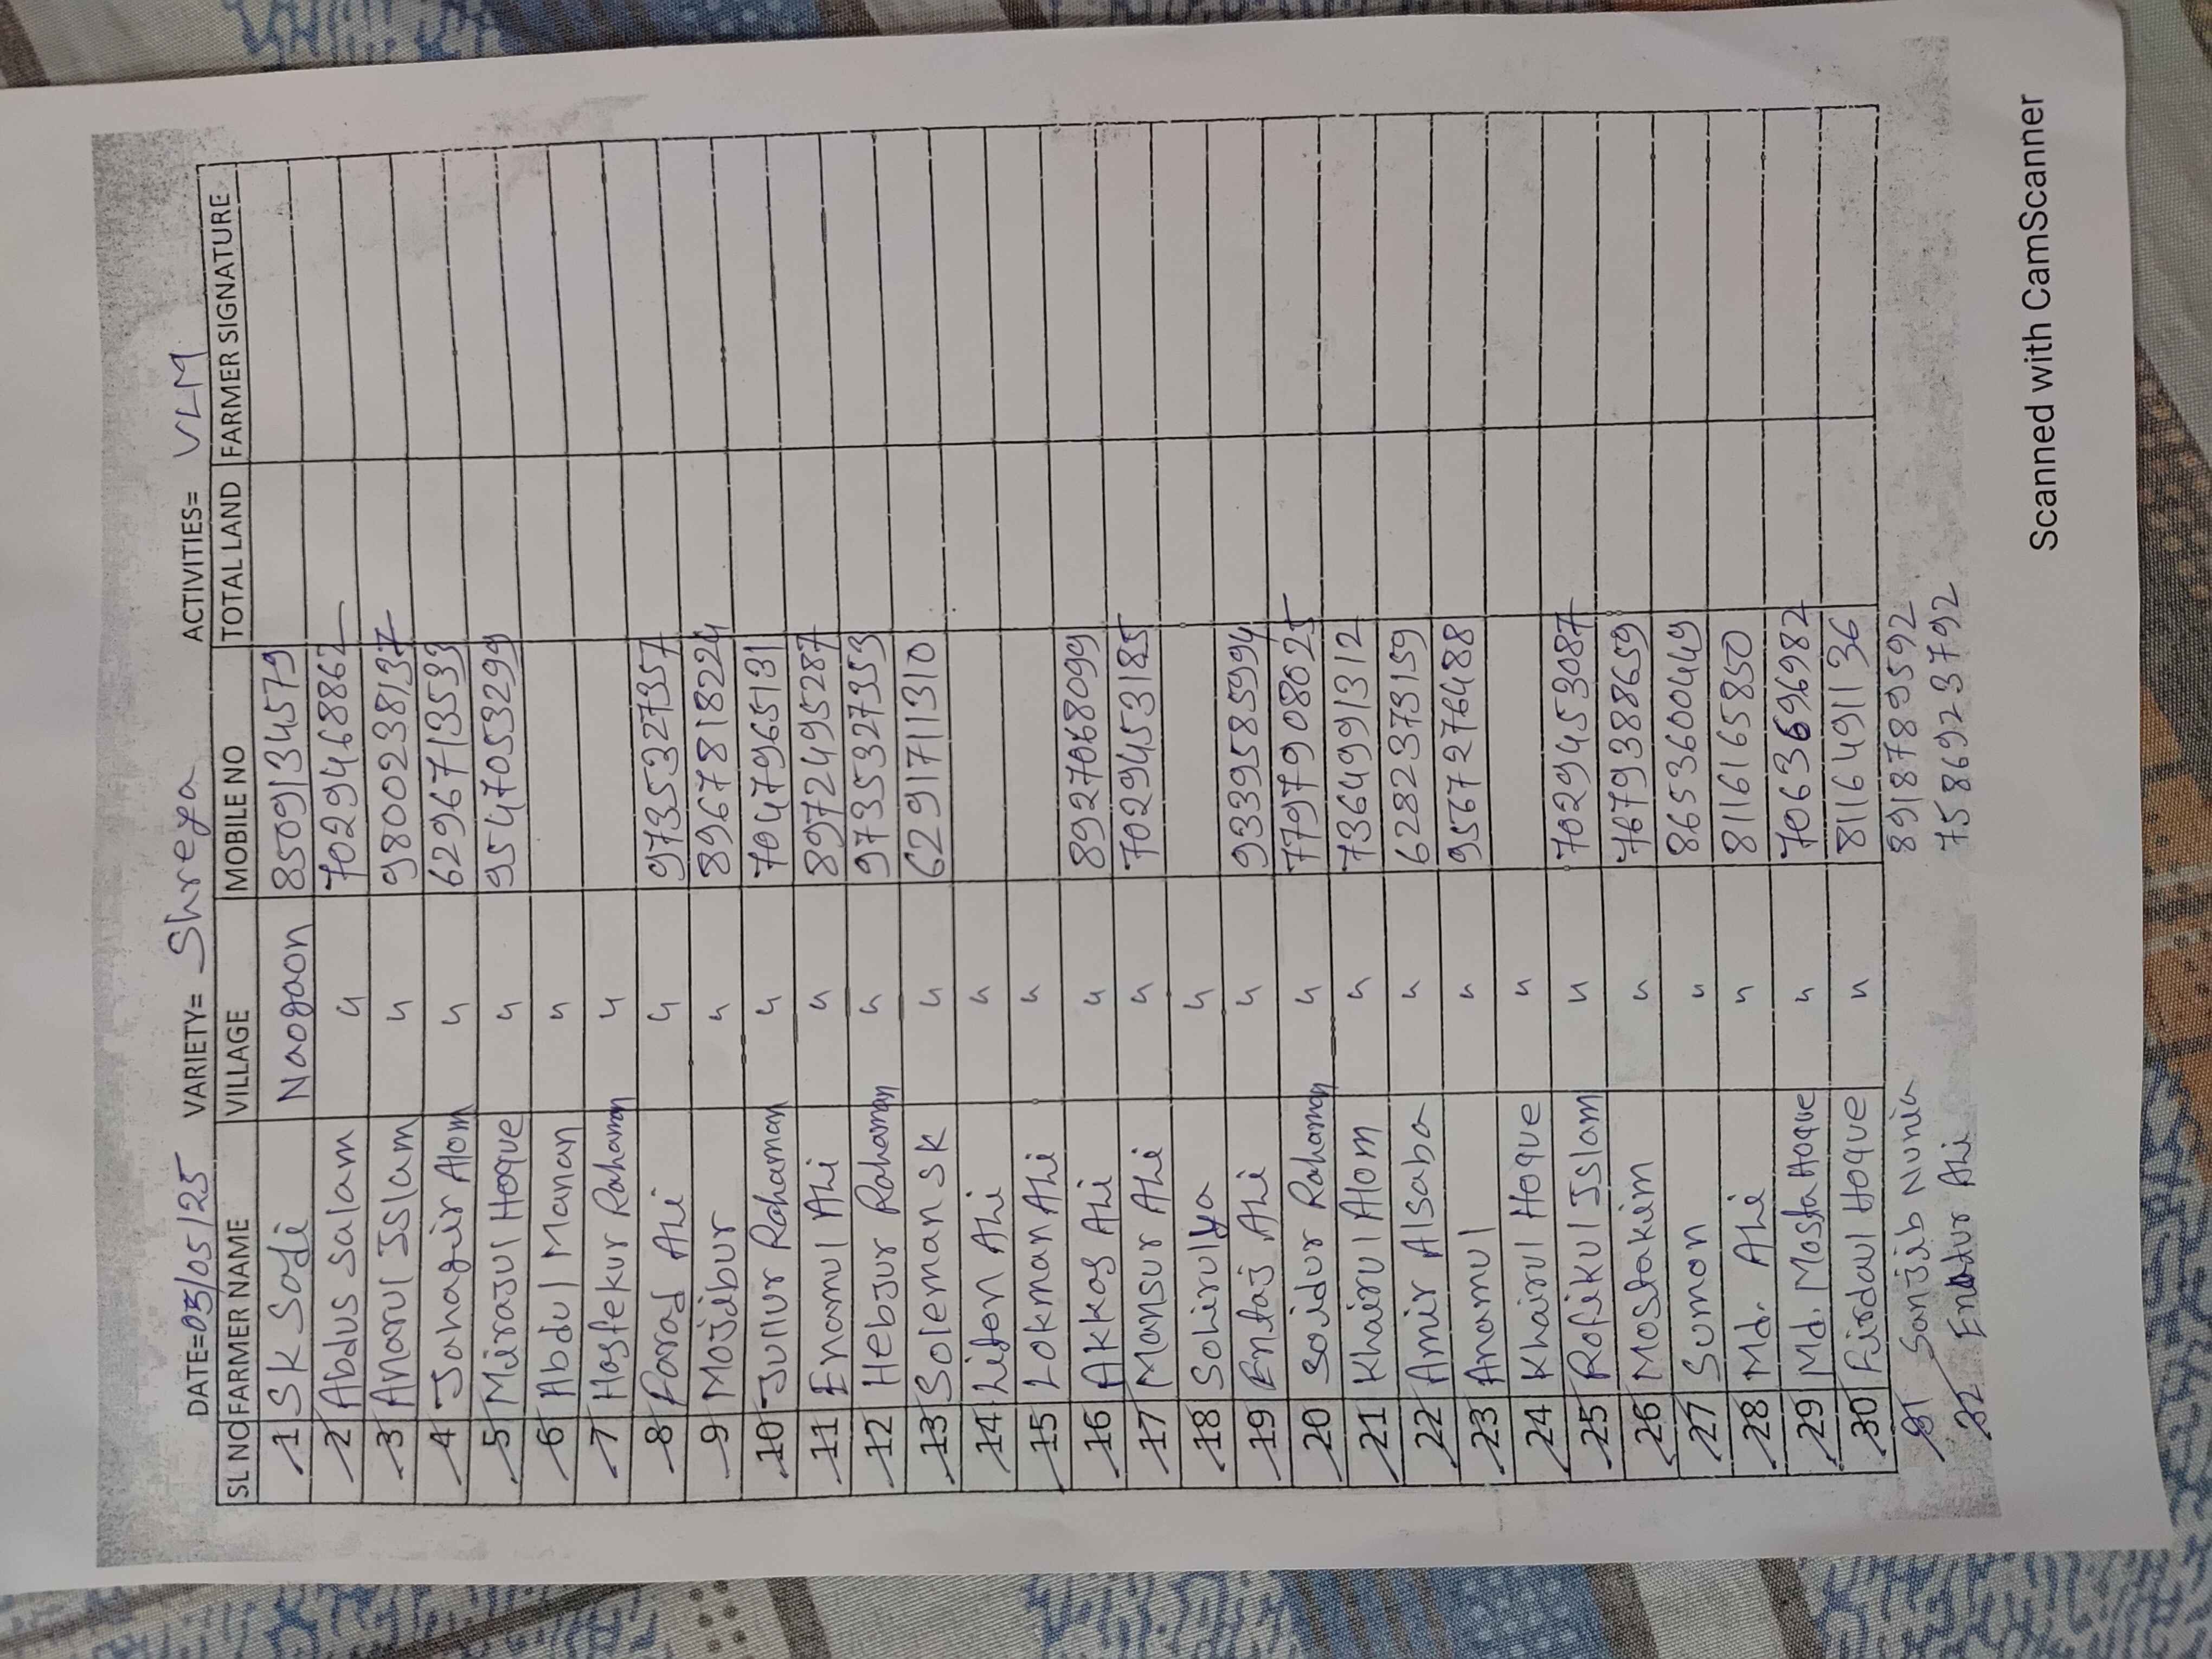 DATE=05/05/25 VARIETY= Shreya ACTIVITIES= VLM
SL NO FARMER NAME VILLAGE MOBILE NO TOTAL LAND FARMER SIGNATURE
1 SK Sadi Naogaon 8509134579
2 Abdus Salam " 7029468862
3 Anarul Islam " 9800238137
4 Jahagir Alom " 6296713533
5 Mirajul Hoque " 9547053299
6 Abdul Manan "
7 Hasfekur Rahaman "
8 Farad Ali " 9735327357
9 Mojibur " 8967818224
10 Jullur Rahaman " 7047965131
11 Enamul Ali " 8972495287
12 Hebjur Rahaman " 9735327353
13 Soleman SK " 6291711310
14 Liton Ali "
15 Lokman Ali "
16 Akkas Ali " 8927068099
17 Mansur Ali " 7029453185
18 Sohirul "
19 Entaj Ali " 9339585994
20 Saidur Rahaman " 7797908025
21 Khairul Alom " 7364991312
22 Amir Alsaba " 6282373159
23 Anamul " 9567276488
24 Khairul Hoque "
25 Rofikul Islam " 7029453087
26 Mostakim " 7679388659
27 Sumon " 8653600449
28 Md. Ali " 8116165850
29 Md. Mosta Hoque " 7063696982
30 Firdaul Hoque " 8116491136
31 Sanjib Nunia 8918789592
32 Ali 7586923792
Scanned with CamScanner